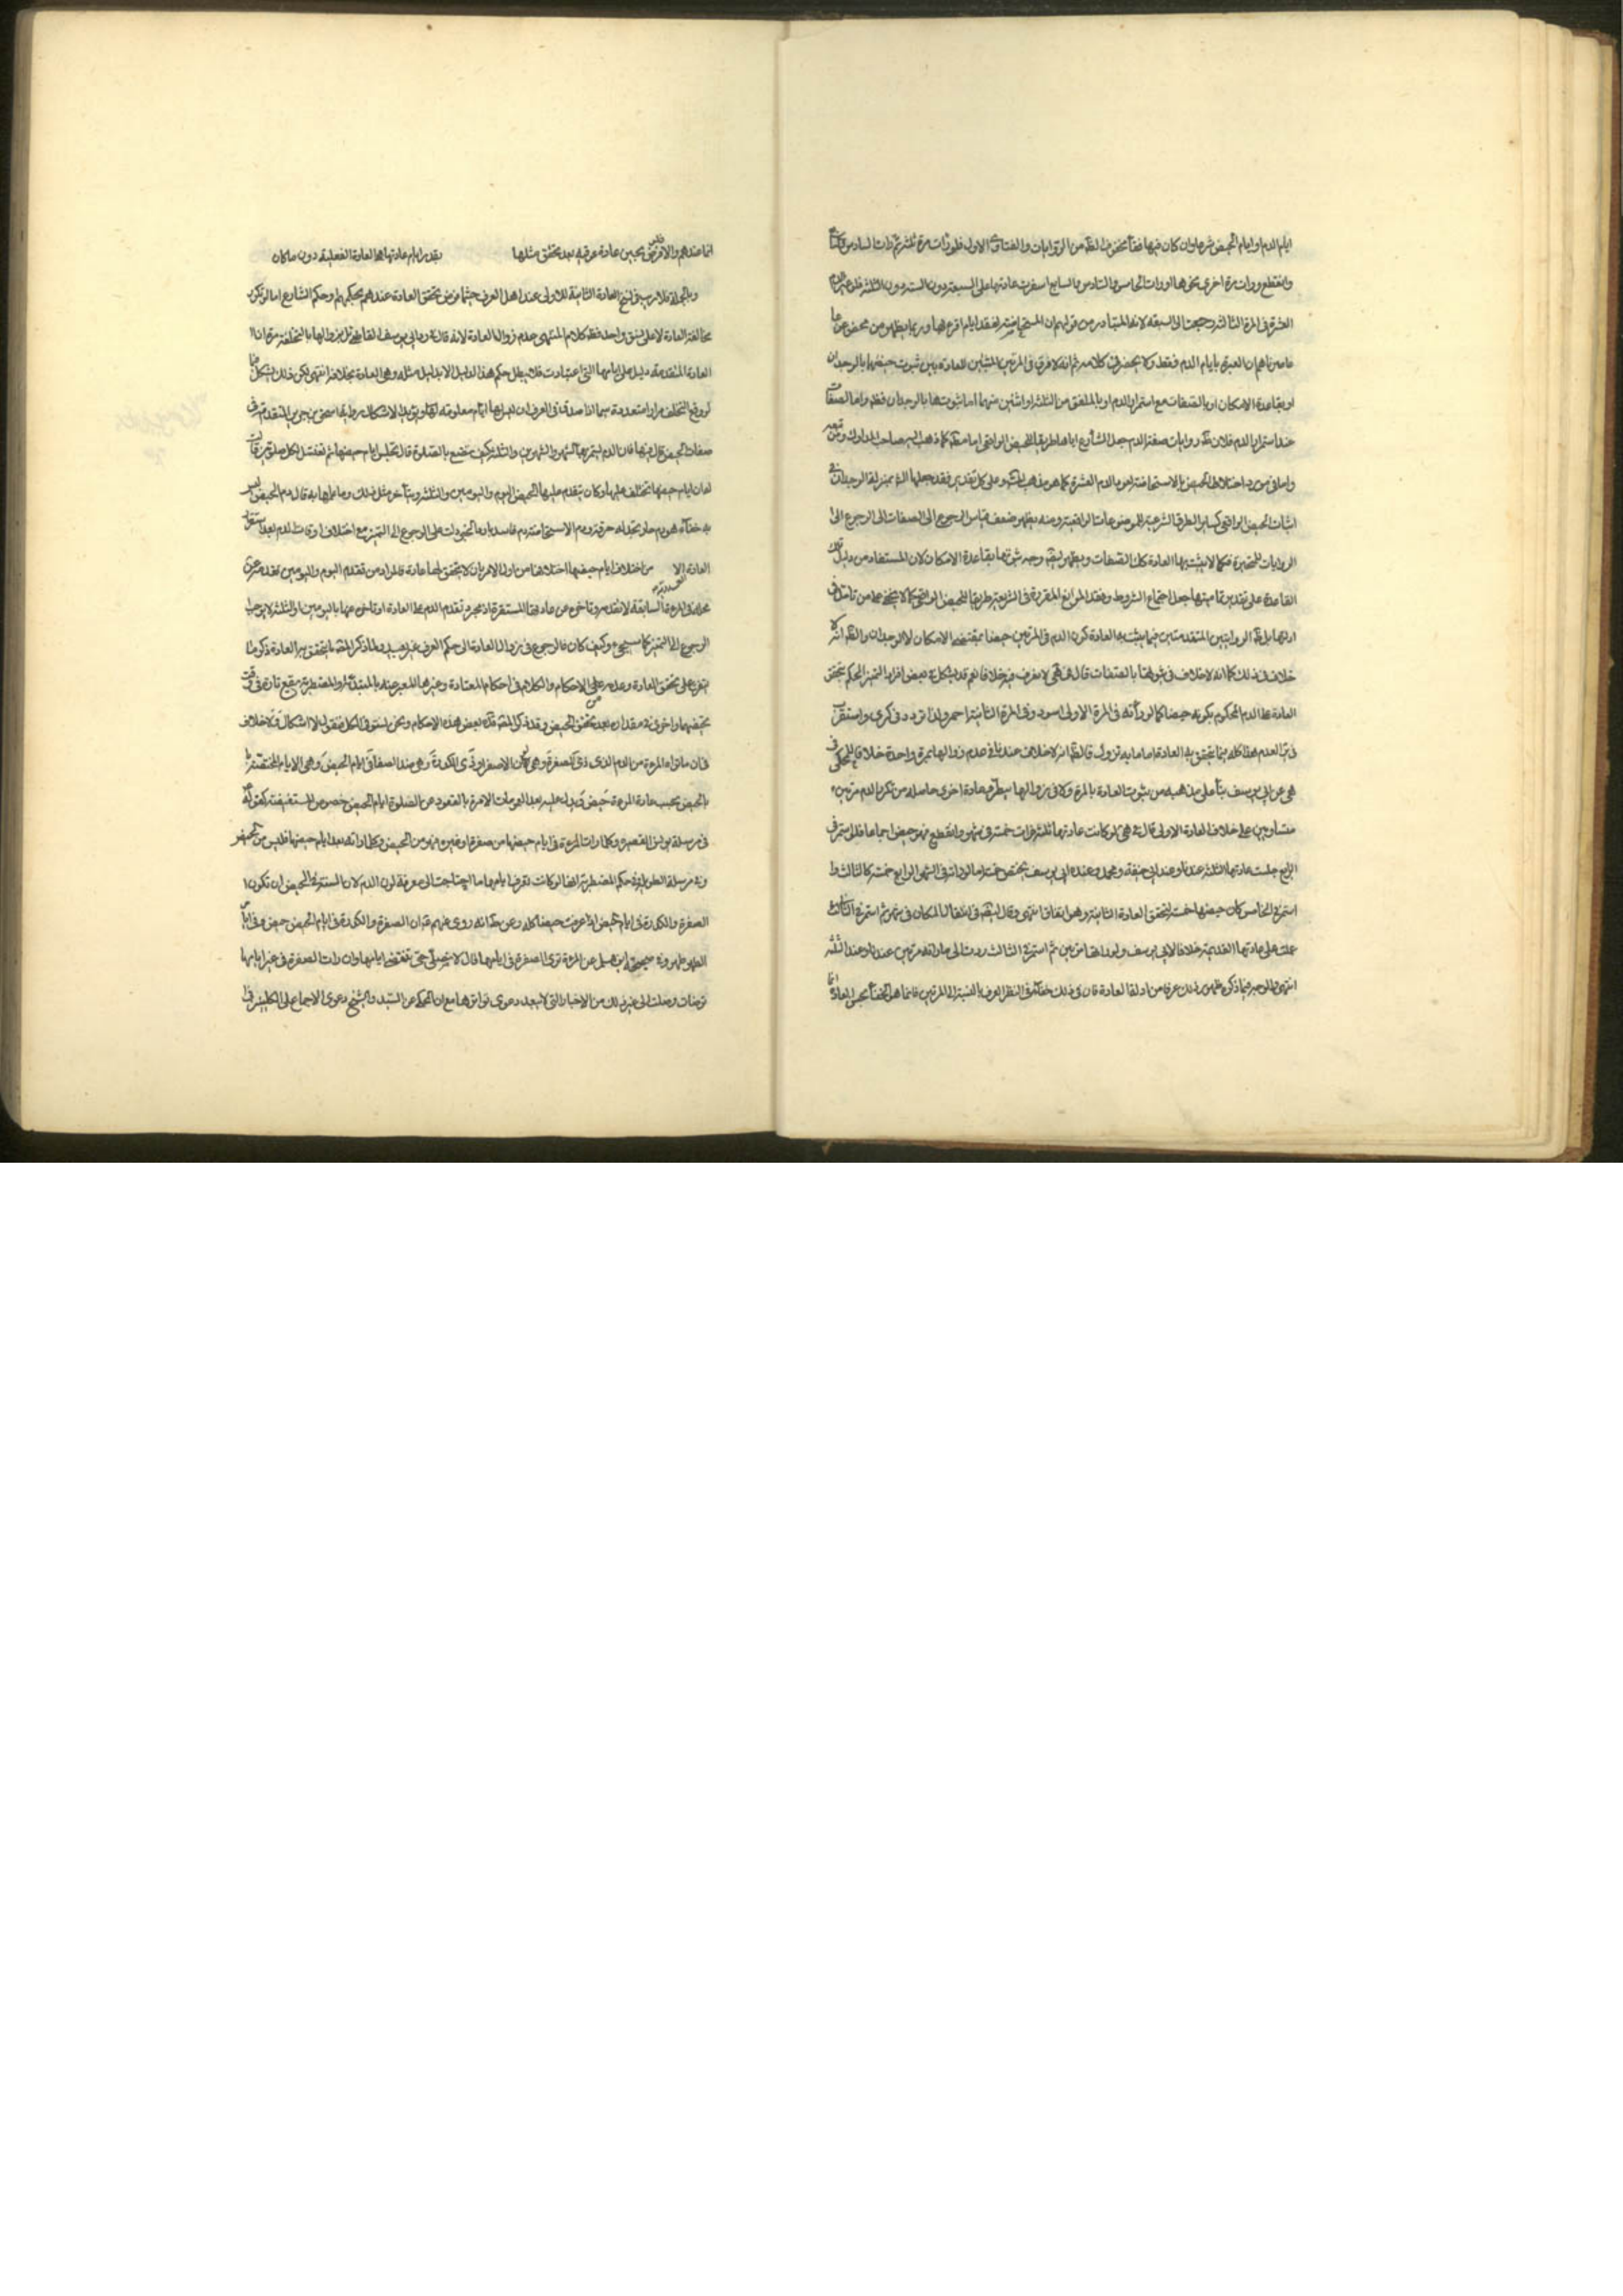 ايام الدم او ايام الحيض شرعا وان كان فيها نقاء محض الظ من الروايات والفتاوى الاول فلو رات مرة ثلثة ثم رات السادس
وانقطع ورات مرة اخرى نحوها او رات الخامس والسادس والسابع استقرت عادتها على السبعة دون الستة دون الثلثة فلو عبر الدم
العشرة في المرة الثالثة رجعت الى السبعة لانه المتبادر من قولهم ان المستحاضة بقدر ايام اقرائها وربما يظهر من بعض
معاصرينا هم ان العبرة بايام الدم فقط ولا يحضرني كلامه ثم انه لا فرق في المرتين المثبتين للعادة بين ثبوت حيضهما بالوجدان
او بقاعدة الامكان او بالصفات مع استمرار الدم او بالملفق من الثلثة او اثنين منها اما ثبوتها بالوجدان فظ واما الصفات
عند استمرار الدم فلان روايات صفة الدم جعل الشارع اياها طريقا للحيض الواقعي اما مط كما ذهب اليه صاحب المدارك ومن تبعه
واما في مورد اختلاط الحيض بالاستحاضة من الدم العشرة كما هو مذهب وعلى كل تقدير فقد جعلها الش بمنزلة الوجدان في
اثبات الحيض الواقعي كساير الطرق الشرعية للموضوعات الواقعية ومنه يظهر ضعف قياس الرجوع الى الصفات الى الرجوع الى
الروايات للمتحيرة فكما لا يثبت بها العادة كك الصفات ويظهر ايضا وجه ثبوتها بقاعدة الامكان لان المستفاد من دليل تلك
القاعدة على تقدير تماميتها جعل اجتماع الشروط وفقد الموانع المقررة في الشريعة طريقا للحيض الواقعي كما لا يخفى على من تامل في
ادلتها بل الروايتين المتقدمتين فيما يثبت به العادة كون الدم في المرتين حيضا بمقتضى الامكان لا الوجدان والظ انه لا
خلاف في ذلك كما انه لا خلاف في ثبوتها بالصفات قال في هى لا نعرف فيه خلافا نعم قد يشكل في بعض افراد التميز الحكم بتحقق
العادة مط الدم المحكوم بكونه حيضا كما لو رأته في المرة الاولى اسود وفي المرة الثانية احمر ولذا تردد في كرى واستقرب
في العدم هذا كله فيما يتحقق به العادة اما ما به تزول فالظ انه لا خلاف عندنا في عدم زوالها بمرة واحدة خلافا للمحكى في
هى عن ابي يوسف بناء على مذهبه من ثبوت العادة بالمرة ولا في زوالها بطرو عادة اخرى حاصلة من تكرر الدم مرتين
متساويين على خلاف العادة الاولى قال في هى لو كانت عادتها ثلثة فرات خمسة في شهر وانقطع فهو حيض اجماعا فلو استمر في
الرابع جلست عادتها الثلثة عندنا وعند ابي حنيفة ومحمد وعند ابي يوسف تحيض خمسة اما لو رات في الشهر الرابع خمسة كالثالث و
استمر في الخامس كان حيضها خمسة لتحقق العادة الثانية وهو اتفاق انتهى وقال ايضا في انتقال المكان في شهر ثم استمر في الثاني
عملت على عادتها القديمة خلافا لابي يوسف ولو مرتين ثم استمر في الثالث ردت الى ما رأته مرتين عندنا وعند الثلثة
انتهى والوجه فيما ذكره ظهور ذلك عرفا من ادلة العادة فان في ذلك خفاء في النظر العرفي بالنسبة الى المرتين فانما هو لخفاء تحقق العادة
انما عندهم والا فلو فرض تحيين عادة عرفية بعد تحقق مثلها بقدر ايام عادتها هو العادة الفعلية دون ما كان
وبالجملة فلا ريب في نسخ العادة الثانية للاولى عند اهل العرف حيثما فرض تحقق العادة عندهم بحكمهم او حكم الشارع اما لو تكرر
مخالفة العادة لا على نسق واحد فظ كلام المنتهى عدم زوال العادة لانه قال في رد ابي يوسف القائل بزوالها بالتخلف مرة ان
العادة المتقدمة دليل على ايامها التي اعتادت فلا يبطل حكم هذا الدليل الا بدليل مثله وهو العادة بخلافه انتهى لكن ذلك يشكل
لو وقع التخلف مرارا متعددة بما اذا صدق في العرف ان ليس لها ايام معلومة ويؤيد الاشكال رواية اسحق بن جرير المتقدمة في
صفات الحيض قلت لها فان الدم يستمر بها الشهر والشهرين والثلثة كيف تصنع بالصلوة قال تجلس ايام حيضها ثم تغتسل لكل صلوتين قالت
له ان ايام حيضها تختلف عليها وكان يتقدم عليها الحيض اليوم واليومين والثلثة ويتأخر مثل ذلك وما علمها به قال دم الحيض ليس
به خفاء هو دم حار تجد له حرقة ودم الاستحاضة دم فاسد بارد على الرجوع الى التميز مع اختلاف اوقات الدم بعد استقرار
العادة الا من اختلاف ايام حيضها اختلافها من اول الامر بان لا يتحقق لها عادة فالمراد من تقدم اليوم واليومين تقدمه عن
محله في المرة السابقة لا تقدمه وتاخره عن عادتها المستقرة اذ مجرد تقدم الدم على العادة او تاخره عنها باليومين او الثلثة لا يوجب
الرجوع الى التميز كما سيجيء وكيف كان فالرجوع في زوال العادة الى حكم العرف غير بعيد ولما ذكر المص ما يتحقق به العادة ذكر ما
يتفرع على تحقق العادة وعدمه من الاحكام والكلام في احكام المعتادة وغيرها المعبر عنها بالمبتدئة والمضطربة يقع تارة في وقت
تحيضها واخرى في مقداره بعد تحقق الحيض وقد ذكر المص بعض هذه الاحكام ونحن نستوفي الكل فنقول لا اشكال ولا خلاف
في ان ما تراه المرءة من الدم الذي ذي الصفرة وهي لون الاصفر او ذي الكدرة وهي ضد الصفاء في ايام الحيض وهي الايام المختصة
بالحيض بحسب عادة المرءة حيض ويدل عليه بعد العمومات الامرة بالقعود عن الصلوة ايام الحيض خصوص المستفيضة كقوله
في مرسلة يونس القصيرة وكلما رات المرءة في ايام حيضها من صفرة او غيره فهو من الحيض وكلما رأته بعد ايام حيضها فليس من الحيض
وفي مرسلة الطويلة في حكم المضطربة انها لو كانت تعرف ايامها ما احتاجت الى معرفة لون الدم لان السنة في الحيض ان تكون
الصفرة والكدرة في ايام الحيض اذا عرفت حيضا كله وعن ط انه روى عنهم ان الصفرة والكدرة في ايام الحيض حيض وفي ايام
الطهر طهر وفي صحيحة ابن مسلم عن المرءة ترى الصفرة في ايامها قال لا تصلي حتى تنقضي ايامها وان رات الصفرة في غير ايامها
توضأت وصلت الى غير ذلك من الاخبار التي لا يبعد دعوى تواترها مع ان المحكى عن السيد والشيخ دعوى الاجماع على